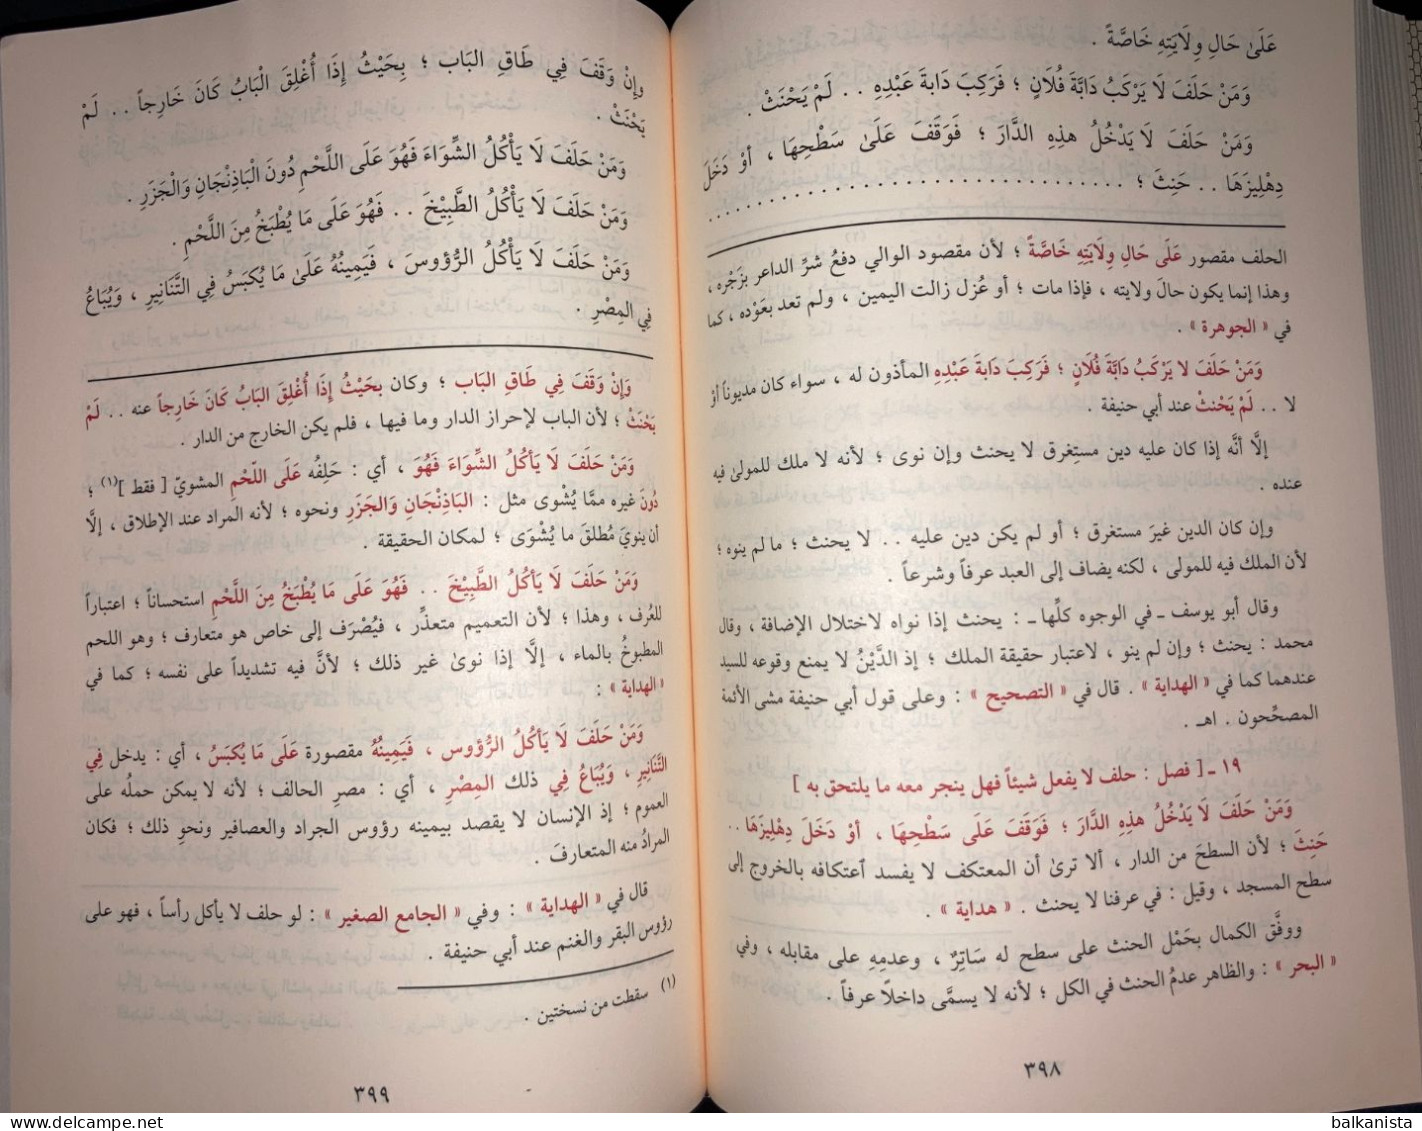 عَلَىٰ حَالِ وِلَايَتِهِ خَاصَّةً .
وَمَنْ حَلَفَ لَا يَرْكَبُ دَابَّةَ فُلَانٍ ؛ فَرَكِبَ دَابةَ عَبْدِهِ . . لَمْ يَحْنَثْ .
وَمَنْ حَلَفَ لَا يَدْخُلُ هذِهِ الدَّارَ ؛ فَوَقَفَ عَلَىٰ سَطْحِهَا ، أَوْ دَخَلَ
دِهْلِيزَهَا . . حَنِثَ ؛ . . . . . . . . . . . . . . . . . . . . . . . . . . . . . . . . . .
الحلف مقصور عَلَى حَالِ وِلَايَتِهِ خَاصَّةً ؛ لأن مقصود الوالي دفعُ شرِّ الداعر بزَجْره ،
وهذا إنما يكون حالَ ولايته ، فإذا مات ؛ أو عُزل زالت اليمين ، ولم تعد بعَوْده ، كما
في « الجوهرة » .
وَمَنْ حَلَفَ لا يَرْكَبُ دَابَّةَ فُلَانٍ ؛ فَرَكِبَ دَابةَ عَبْدِهِ المأذون له ، سواء كان مديوناً أو
لا . . لَمْ يَحْنَثْ عند أبي حنيفة .
إلَّا أنَّه إذا كان عليه دين مستِغرق لا يحنث وإن نوى ؛ لأنه لا ملك للمولىٰ فيه
عنده .
وإن كان الدين غيرَ مستغرق ؛ أو لم يكن دين عليه . . لا يحنث ؛ ما لم ينوه ؛
لأن الملك فيه للمولى ، لكنه يضاف إلى العبد عرفاً وشرعاً .
وقال أبو يوسف ـ في الوجوه كلِّها ـ : يحنث إذا نواه لاختلال الإضافة ، وقال
محمد : يحنث ؛ وإن لم ينو ، لاعتبار حقيقة الملك ؛ إذ الدَّيْنُ لا يمنع وقوعه للسيد
عندهما كما في « الهداية » . قال في « التصحيح » : وعلى قول أبي حنيفة مشى الأئمة
المصحِّحون . اهـ .
١٩ ـ [ فصل : حلف لا يفعل شيئاً فهل ينجر معه ما يلتحق به ]
وَمَنْ حَلَفَ لَا يَدْخُلُ هذِهِ الدَّارَ ؛ فَوَقَفَ عَلَى سَطْحِهَا ، أوْ دَخَلَ دِهْلِيزَهَا . .
حَنِثَ ؛ لأن السطحَ من الدار ، ألا ترىٰ أن المعتكف لا يفسد ٱعتكافه بالخروج إلى
سطح المسجد ، وقيل : في عرفنا لا يحنث . « هداية » .
ووفَّق الكمال بحَمْل الحنث على سطح له سَاتِرٌ ، وعدمِهِ على مقابله ، وفي
« البحر » : والظاهر عدمُ الحنث في الكل ؛ لأنه لا يسمَّى داخلاً عرفاً .
٣٩٨
وَإِنْ وَقَفَ فِي طَاقِ البَاب ؛ بِحَيْثُ إِذَا أُغْلِقَ الْبَابُ كَانَ خَارِجاً . . لَمْ
يَحْنَثْ .
وَمَنْ حَلَفَ لَا يَأْكُلُ الشِّوَاءَ فَهُوَ عَلَى اللَّحْمِ دُونَ الْبَاذِنْجَانِ وَالْجَزَرِ .
وَمَنْ حَلَفَ لَا يَأْكُلُ الطَّبِيْخَ . . فَهُوَ عَلَى مَا يُطْبَخُ مِنَ اللَّحْمِ .
وَمَنْ حَلَفَ لَا يَأْكُلُ الرُّؤُوسَ ، فَيَمِينُهُ عَلَىٰ مَا يُكبَسُ فِي التَّنَانِيرِ ، وَيُبَاعُ
فِي المِصْرِ .
وَإنْ وَقَفَ فِي طَاقِ البَاب ؛ وكان بِحَيْثُ إذَا أُغْلِقَ البَابُ كَانَ خَارِجاً عنه . . لَمْ
يَحْنَثْ ؛ لأن الباب لإحراز الدار وما فيها ، فلم يكن الخارج من الدار .
وَمَنْ حَلَفَ لَا يَأكُلُ الشِّوَاءَ فَهُوَ ، أي : حَلِفُه عَلَى اللّحْمِ المشويّ [ فقط ](١) ؛
دُونَ غيره ممَّا يُشْوى مثل : البَاذِنْجَانِ وَالجَزَرِ ونحوه ؛ لأنه المراد عند الإطلاق ، إلَّا
أن ينويَ مُطلقَ ما يُشْوَى ؛ لمكان الحقيقة .
وَمَنْ حَلَفَ لَا يَأكُلُ الطَّبِيْخَ . . فَهُوَ عَلَى مَا يُطْبَخُ مِنَ اللَّحْمِ استحساناً ؛ اعتباراً
للعُرف ، وهذا ؛ لأن التعميم متعذِّر ، فيُصْرَف إلى خاص هو متعارف ؛ وهو اللحم
المطبوخُ بالماء ، إلَّا إذا نوىٰ غير ذلك ؛ لأنَّ فيه تشديداً على نفسه ؛ كما في
« الهداية » :
وَمَنْ حَلَفَ لَا يَأكُلُ الرُّؤوس ، فَيَمِينُهُ مقصورة عَلَى مَا يُكْبَسُ ، أي : يدخل فِي
التَّنَانِيرِ ، وَيُبَاعُ فِي ذلك المِصْرِ ، أي : مصرِ الحالف ؛ لأنه لا يمكن حملُه على
العموم ؛ إذ الإنسان لا يقصد بيمينه رؤوس الجراد والعصافير ونحوِ ذلك ؛ فكان
المرادُ منه المتعارفَ .
قال في « الهداية » : وفي « الجامع الصغير » : لو حلف لا يأكل رأساً ، فهو على
رؤوس البقر والغنم عند أبي حنيفة .
(١) سقطت من نسختين .
٣٩٩
balkanista